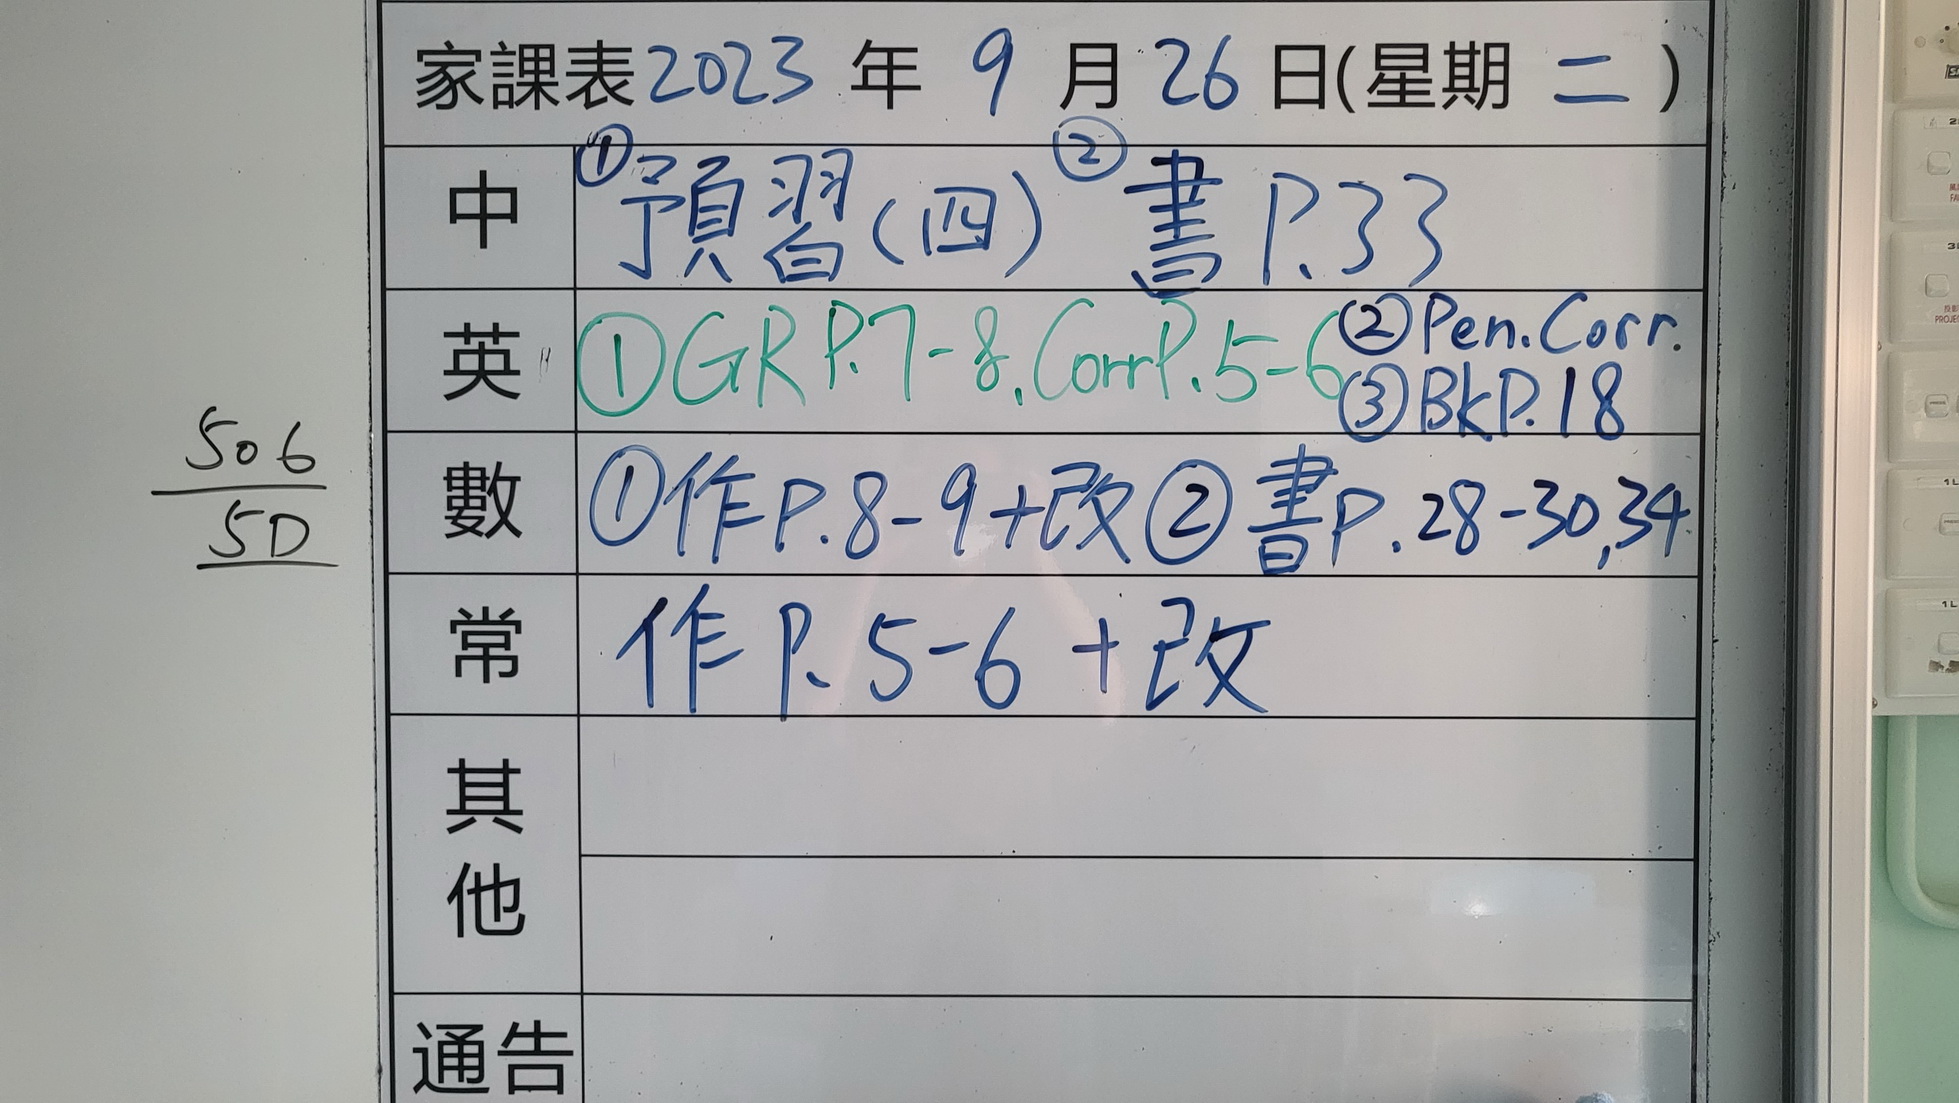 家課表 2023 年 9 月 26 日(星期 二 )
中 ①預習(四) ②書 P.33
英 ①GR P.7-8, Corr P.5-6 ②Pen. Corr.
③Bk P.18
506
5D
數 ①作 P.8-9+改 ②書 P.28-30,34
常 作 P.5-6 +改
其他
通告